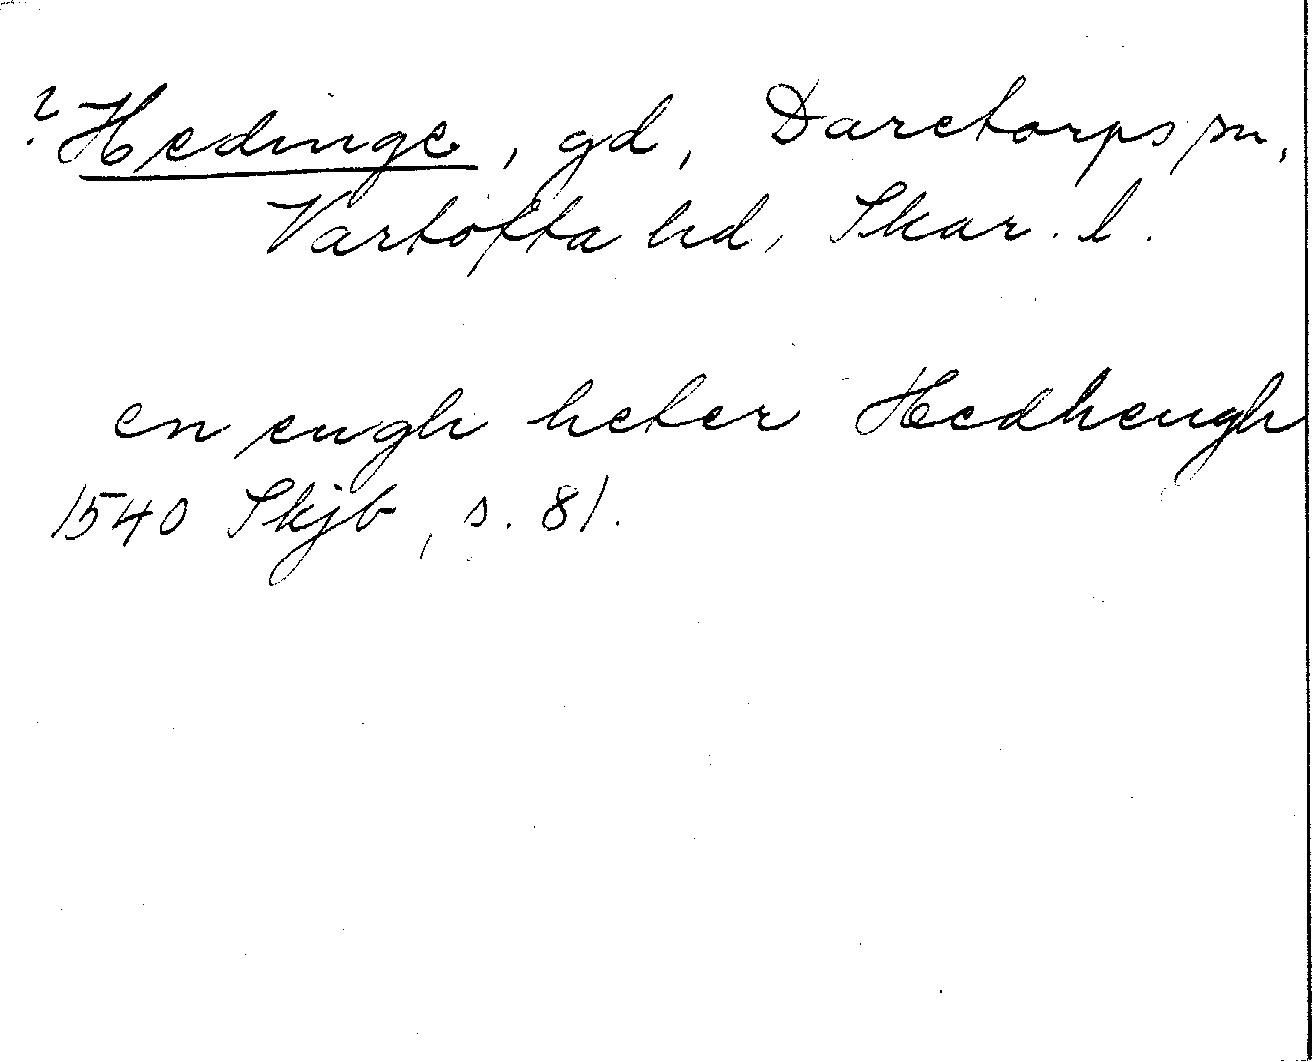 ? Hedinge, gd, Daretorps sn,
Vartofta hd, Skar. l.
en engh heter Hedhengh
1540 Skjb, s. 81.